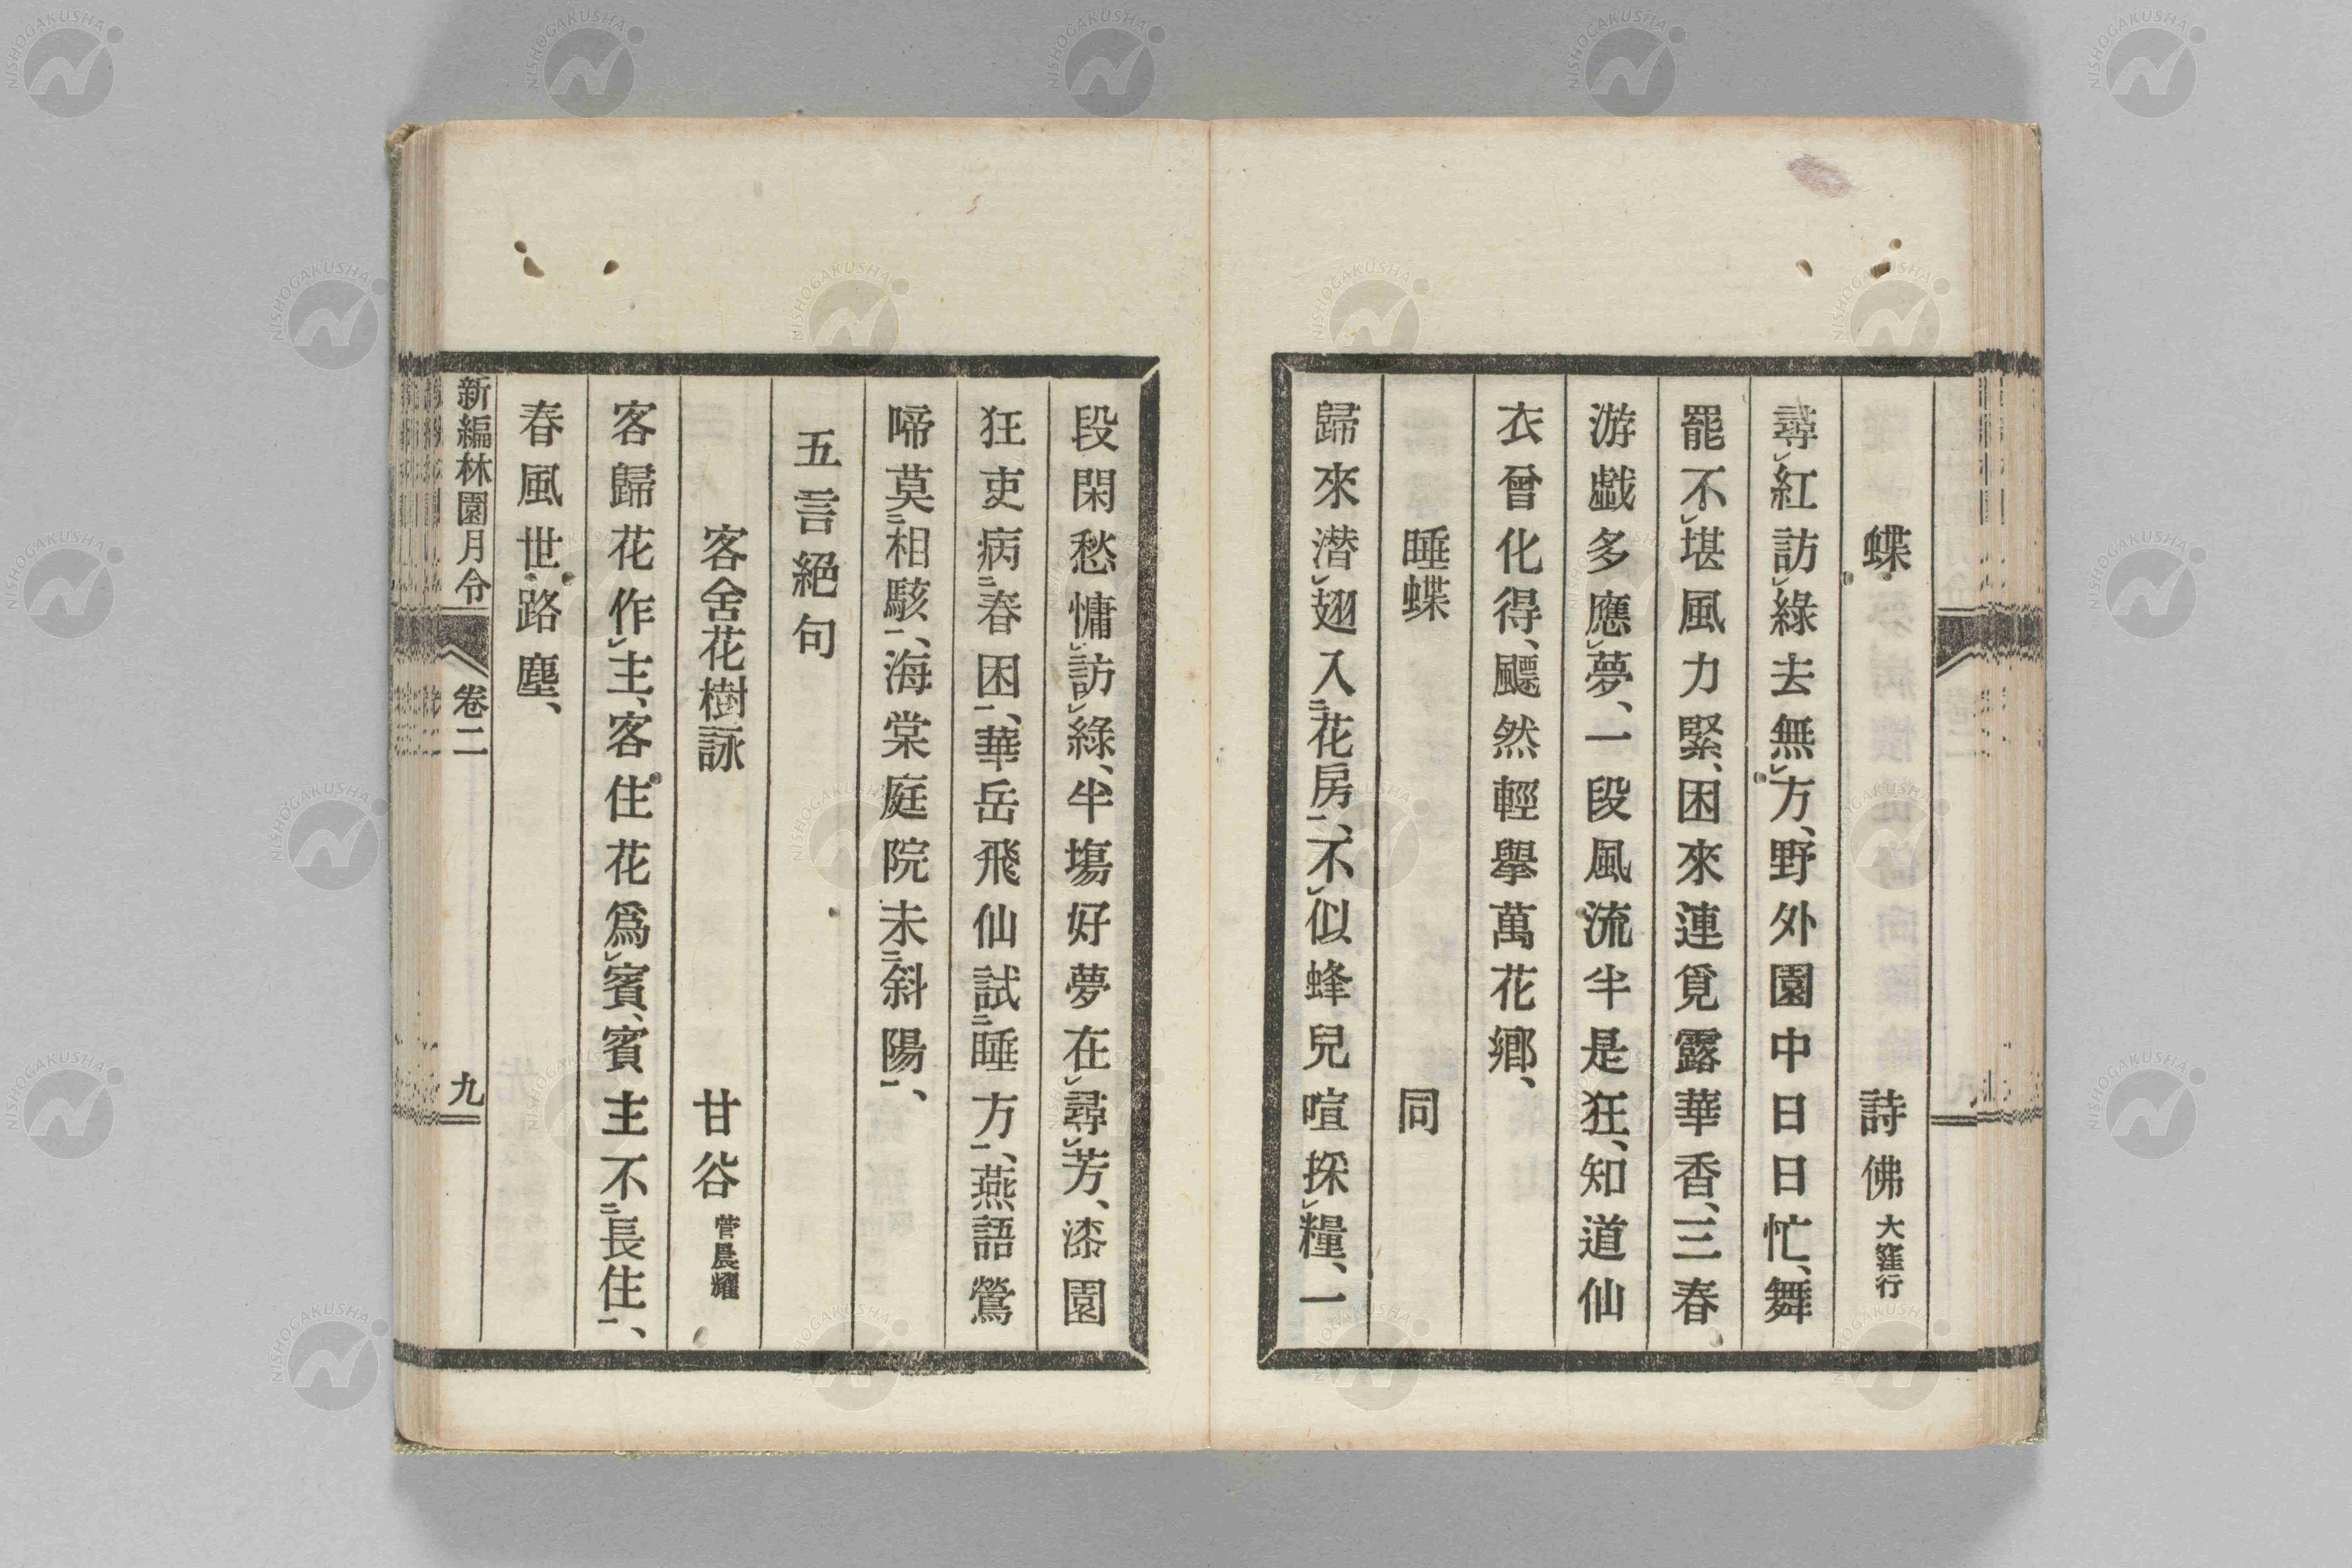 蝶　詩佛 大窪行
尋㆑紅訪㆑綠去無㆑方、野外園中日日忙、舞
罷不㆑堪風力緊、困來連覓露華香、三春
游戲多應㆑夢、一段風流半是狂、知道仙
衣曾化得、飃然輕擧萬花鄉、
睡蝶　同
歸來潜㆑翅入㆓花房㆒、不㆑似蜂兒喧探㆑糧、一
段閑愁慵㆑訪㆑綠、半塲好夢在㆑尋㆑芳、漆園
狂吏病㆓春困㆒、華岳飛仙試㆓睡方㆒、燕語鶯
啼莫㆓相駭㆒、海棠庭院未㆓斜陽㆒、
五言絕句
客舍花樹詠　甘谷 菅晨耀
客歸花作㆑主、客住花爲㆑賓、賓主不㆓長住㆒、
春風世路塵、
新編林園月令　卷二　九
NISHOGAKUSHA